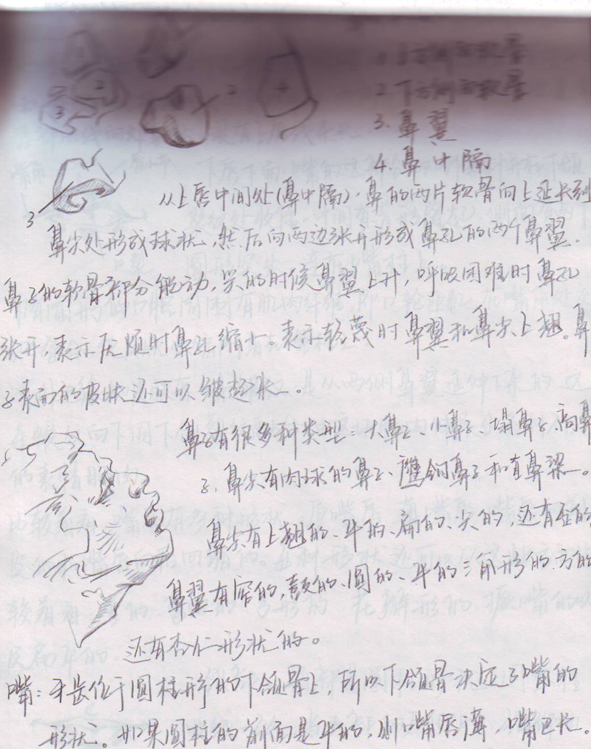 1. 上方侧面软骨
2. 下方侧面软骨
3. 鼻翼
4. 鼻中隔
3 2 4
2
3
从上唇中间处(鼻中隔)。鼻的两片软骨向上延长到
鼻尖处形成球状。然后向两边张开形成鼻孔的两个鼻翼.
鼻子的软骨部分能动，笑的时候鼻翼上升，呼吸困难时鼻孔
张开，表示厌烦时鼻孔缩小。表示轻蔑时鼻翼和鼻尖上翘。鼻
子表面的皮肤还可以皱起来。
鼻子有很多种类型：大鼻子、小鼻子、塌鼻子、高鼻
子、鼻尖有肉球的鼻子、鹰钩鼻子和直鼻梁。
鼻尖有上翘的、平的、扁的、尖的，还有歪的
鼻翼有窄的，宽的、圆的、平的三角形的、方的
还有不一形状的。
嘴：牙齿位于圆柱形的下颌骨上，所以下颌骨决定了嘴的
形状。如果圆柱的前面是平的，则嘴唇薄，嘴巴长。